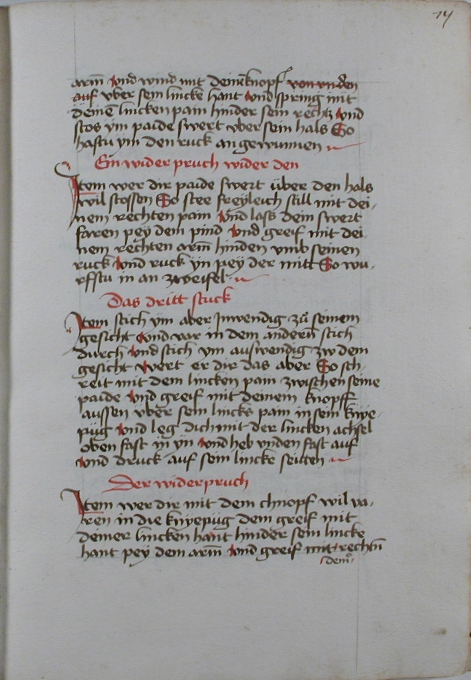 74
arm vnd wind mit deim knopf von vnden
auf vber sein lincke hant vnd spring mit
deinē lincken pain hinder sein rechtz vnd
stos ym paide swert vber sein hals So
hastu ym den ruck angewunnen
Ein wider pruch wider den
Item wer dir paide swert über den hals
wil stossen So stee freyleich still mit dei-
nem rechten pain vnd lass dein swert
faren pey dem pind vnd greif mit dei-
nem rechten arm hinden vmb seinen
ruck vnd ruck yn pey der mitt So wu-
rfstu in an zweifel
Das dritt stuck
Item stich ym aber Inwendig zu seinem
gesicht vnd var in dem andern stich
durch vnd stich ym auswendig zw dem
gesicht wert er dir das aber So sch-
reit mit dem lincken pain zwischen seine
paide vnd greif mit deinem knopff
aussen vber sein lincks pain in sein knye-
püg vnd leg dich mit der lincken achsel
oben fast yn yn vnd heb vnden fast auf
vnd druck auf sein lincke seitten
Der widerpruch
Item wer dir mit dem chnopf wil va-
ren in die knyepug dem greif mit
deiner lincken hant hinder sein lincke
hant pey dem arm vnd greif mit rechtn
dein